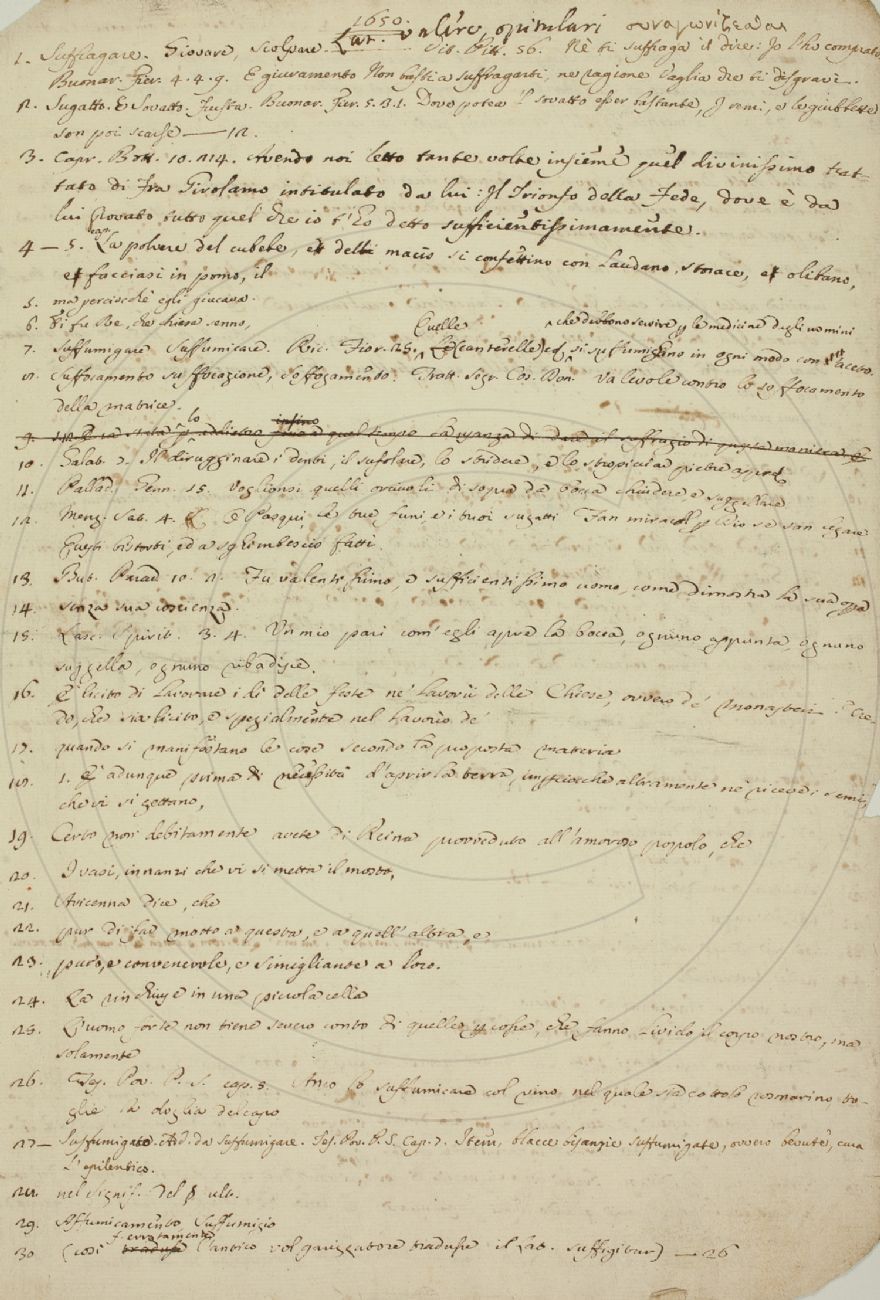 1650.
Lat. valere, opitulari συναγωνίζεσθαι
1. Suffragare. Giovare, Scolpare. Sit. Pitt. 56. Nè ti suffraga il dire: Io l'ho comprato
Buonar. Fier. 4. 4. 9. E giuramento Non basti a suffragarti, ne ragione Vaglia che ti disgravi.
2. Sugatto. E Sovatto. Frusta. Buonar. Fier. 5. 3. 1. Dove potea 'l sovatto esser bastante, I remi, e le giubbette
son poi scarse — 12.
3. Capr. Bott. 10. 214. Avendo noi letto tante volte insieme quel divinissimo trat-
tato di Fra Girolamo intitulato da lui: Il Trionfo della Fede, dove è da
lui provato tutto quel che io t'ho detto sufficientissimamente.
4 — 5. La polvere del cubebe, et delli macis si confettino con Laudano, storace, et olibano,
et facciasi in pomo, il
5. ma perciocchè egli giucava.
6. Vi fu Re, che hiera senno,
Quelle che debbono servire per le medicine degli uomini
7. Suffumigare Suffumicare. Ric. Fior. 25. Le (canterelle) ed si suffumighino in ogni modo con aceto.
8. Suffocamento suffocazione, affogamento. Tratt. Segr. Cos. Don. Valevole contro lo soffocamento
della matrice.
lo infino
9. suffragio di
10. Salab. 2. Il dirugginare i denti, il sufolare, lo stridere, e lo stropicciar pietre aspre
11. Pallad. Genn. 15. Voglionsi quelli orciuoli di sopra da bocca chiudere e suggellare
12. Menz. Sat. 4. E Pasqui, le tue funi, e i tuoi sugatti Fan miracol, per Dio se san legare
Questi bistorti, ed a sghimbescio fatti.
13. But. Parad 10. 2. Fu valentissimo, e sufficientissimo uomo, come dimostra la sua opera
14. senza sua coscienza.
15. Lasc. Spirit. 3. 4. Un mio pari com' egli apre la bocca, ognuno appunta, ognuno
suggella, ognuno ribadisce.
16. È licito di lavorare i dì delle feste ne' lavorii delle Chiese, ovvero de' monasteri? Cre-
do, che sia licito, e spezialmente nel lavorio de'
17. quando si manifestano le cose secondo la proposta materia
18. 1. E' adunque prima di necessità d'aprir la terra, imperciocchè altramente nè riceve i semi,
che vi si gettano,
19. Certo non debitamente avete di Reina provveduto all'amoroso popolo, che
20. I vasi, innanzi che vi si metta il mosto,
21. Avicenna dice, che
22. pur di far motto a questa, e a quell'altra, e
23. puro, e convenevole, e simigliante a loro.
24. La rinchiuse in una piccola cella
25. L'uomo forte non tiene severo conto di quelle percosse, che fanno livido il corpo nostro, ma
solamente
26. Tes. Pov. P. S. cap. 5. Anco lo suffumicare col vino nel quale sia cotto lo rosmarino to-
glie la doglia del capo
27 — Suffumigato. Ad. da Suffumigare. Tes. Pov. P. S. Cap. 7. Item, blacce bisanzie suffumigate, ovvero bevute, cura
l'epilentico.
28. nel signif. del § ult.
29. Affumicamento, Suffumigio
erratamente
30 (così l'antico volgarizzatore tradusse il Lat. suffigitur) — 26